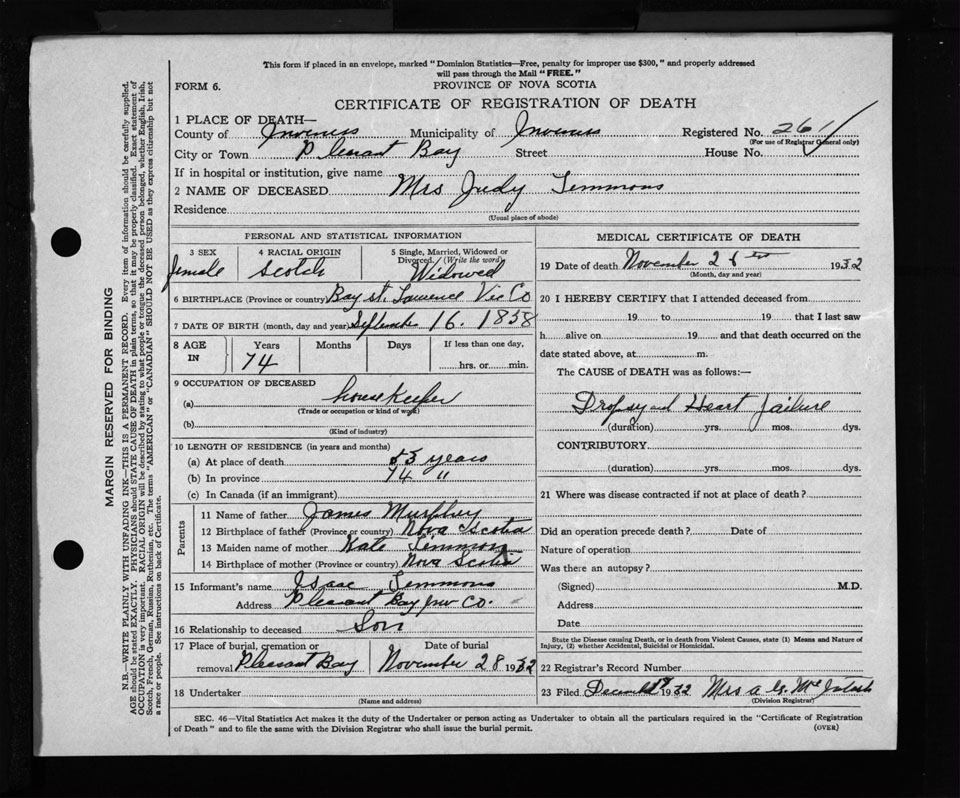 This form if placed in an envelope, marked "Dominion Statistics—Free, penalty for improper use $300," and properly addressed
will pass through the Mail "FREE."
FORM 6.
PROVINCE OF NOVA SCOTIA
CERTIFICATE OF REGISTRATION OF DEATH
1 PLACE OF DEATH—
County of Inverness Municipality of Inverness Registered No. 261
(For use of Registrar General only)
City or Town Plesant Bay Street House No.
If in hospital or institution, give name
2 NAME OF DECEASED Mrs Judy Timmons
Residence
(Usual place of abode)
PERSONAL AND STATISTICAL INFORMATION
3 SEX 4 RACIAL ORIGIN 5 Single, Married, Widowed or
Divorced. (Write the word)
female Scotch Widowed
6 BIRTHPLACE (Province or country) Bay St. Lawrence Vic Co
7 DATE OF BIRTH (month, day and year) September 16. 1858
8 AGE IN Years Months Days If less than one day,
74 hrs. or min.
9 OCCUPATION OF DECEASED
(a) house Keeper
(Trade or occupation or kind of work)
(b)
(Kind of industry)
10 LENGTH OF RESIDENCE (in years and months)
(a) At place of death 53 years
(b) In province 74 "
(c) In Canada (if an immigrant)
Parents
11 Name of father James Murphy
12 Birthplace of father (Province or country) Nova Scotia
13 Maiden name of mother Kate Timmons
14 Birthplace of mother (Province or country) Nova Scotia
15 Informant's name Isaac Timmons
Address Pleasant Bay Inv Co.
16 Relationship to deceased Son
17 Place of burial, cremation or Date of burial
removal Pleasant Bay November 28 1932
18 Undertaker
(Name and address)
MEDICAL CERTIFICATE OF DEATH
19 Date of death November 1932
(Month, day and year)
20 I HEREBY CERTIFY that I attended deceased from
19 to 19 that I last saw
h alive on 19 and that death occurred on the
date stated above, at m.
The CAUSE of DEATH was as follows:—
Dropsy and Heart Failure
(duration) yrs. mos. dys.
CONTRIBUTORY
(duration) yrs. mos. dys.
21 Where was disease contracted if not at place of death?
Did an operation precede death? Date of
Nature of operation
Was there an autopsy?
(Signed) M.D.
Address
Date
State the Disease causing Death, or in death from Violent Causes, state (1) Means and Nature of
Injury, (2) whether Accidental, Suicidal or Homicidal.
22 Registrar's Record Number
23 Filed December 1932 Mrs A. G. McIntosh
(Division Registrar)
SEC. 46—Vital Statistics Act makes it the duty of the Undertaker or person acting as Undertaker to obtain all the particulars required in the "Certificate of Registration
of Death" and to file the same with the Division Registrar who shall issue the burial permit.
(OVER)
MARGIN RESERVED FOR BINDING
N.B.—WRITE PLAINLY WITH UNFADING INK—THIS IS A PERMANENT RECORD. Every item of information should be carefully supplied.
AGE should be stated EXACTLY. PHYSICIANS should STATE CAUSE OF DEATH in plain terms, so that it may be properly classified. Exact statement of
OCCUPATION is very important. RACIAL ORIGIN will be described by stating to what people or tongue the deceased person belonged, whether English, Irish,
Scotch, French, German, Russian, Ruthenian, etc. The terms "AMERICAN" or "CANADIAN" SHOULD NOT BE USED as they express citizenship but not
a race or people. See instructions on back of Certificate.